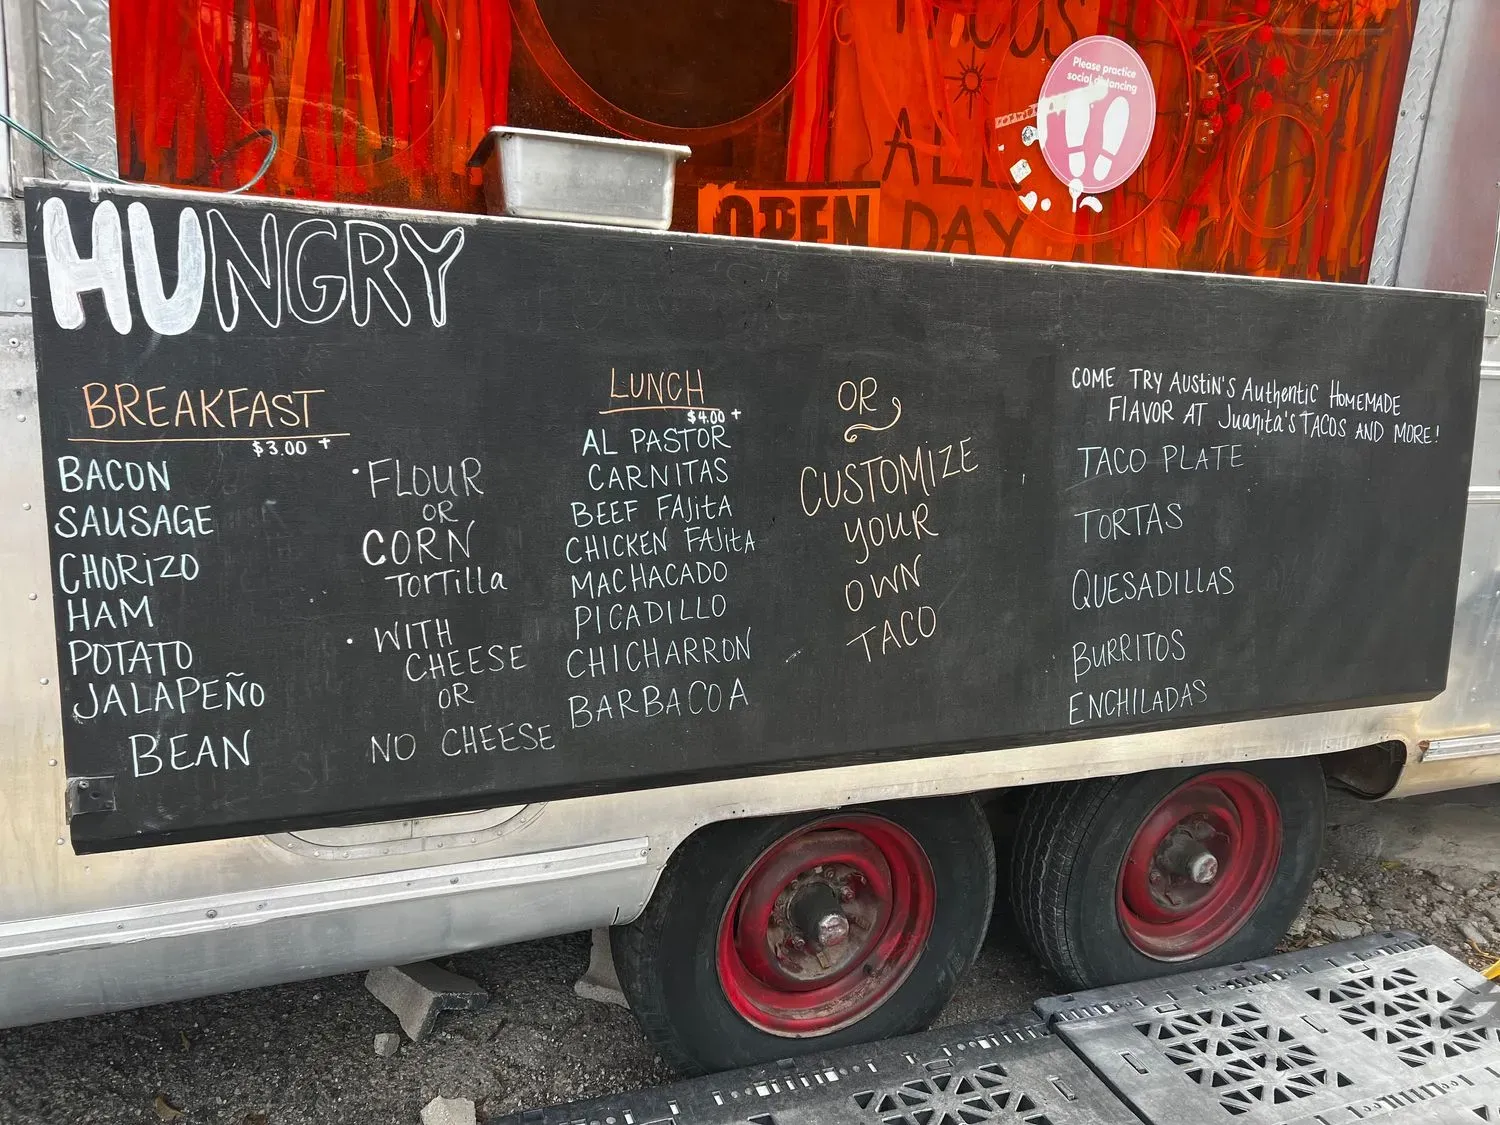 TACOS
ALL
DAY
OPEN
Please practice
social distancing
HUNGRY
BREAKFAST
$3.00 +
BACON
SAUSAGE
CHORIZO
HAM
POTATO
JALAPEÑO
BEAN
• FLOUR
OR
CORN
TORTILLa
• WITH
CHEESE
OR
NO CHEESE
LUNCH
$4.00 +
AL PASTOR
CARNITAS
BEEF FAJitA
CHICKEN FAJitA
MACHACADO
PICADILLO
CHICHARRON
BARBACOA
OR
CUSTOMIZE
YOUR
OWN
TACO
COME TRY AUStiN'S AuthENtiC HOMEMADE
FlAVOR AT Juanita's TACOS AND MORE!
TACO PLATE
TORTAS
QUESADILLAS
BURRITOS
ENCHILADAS